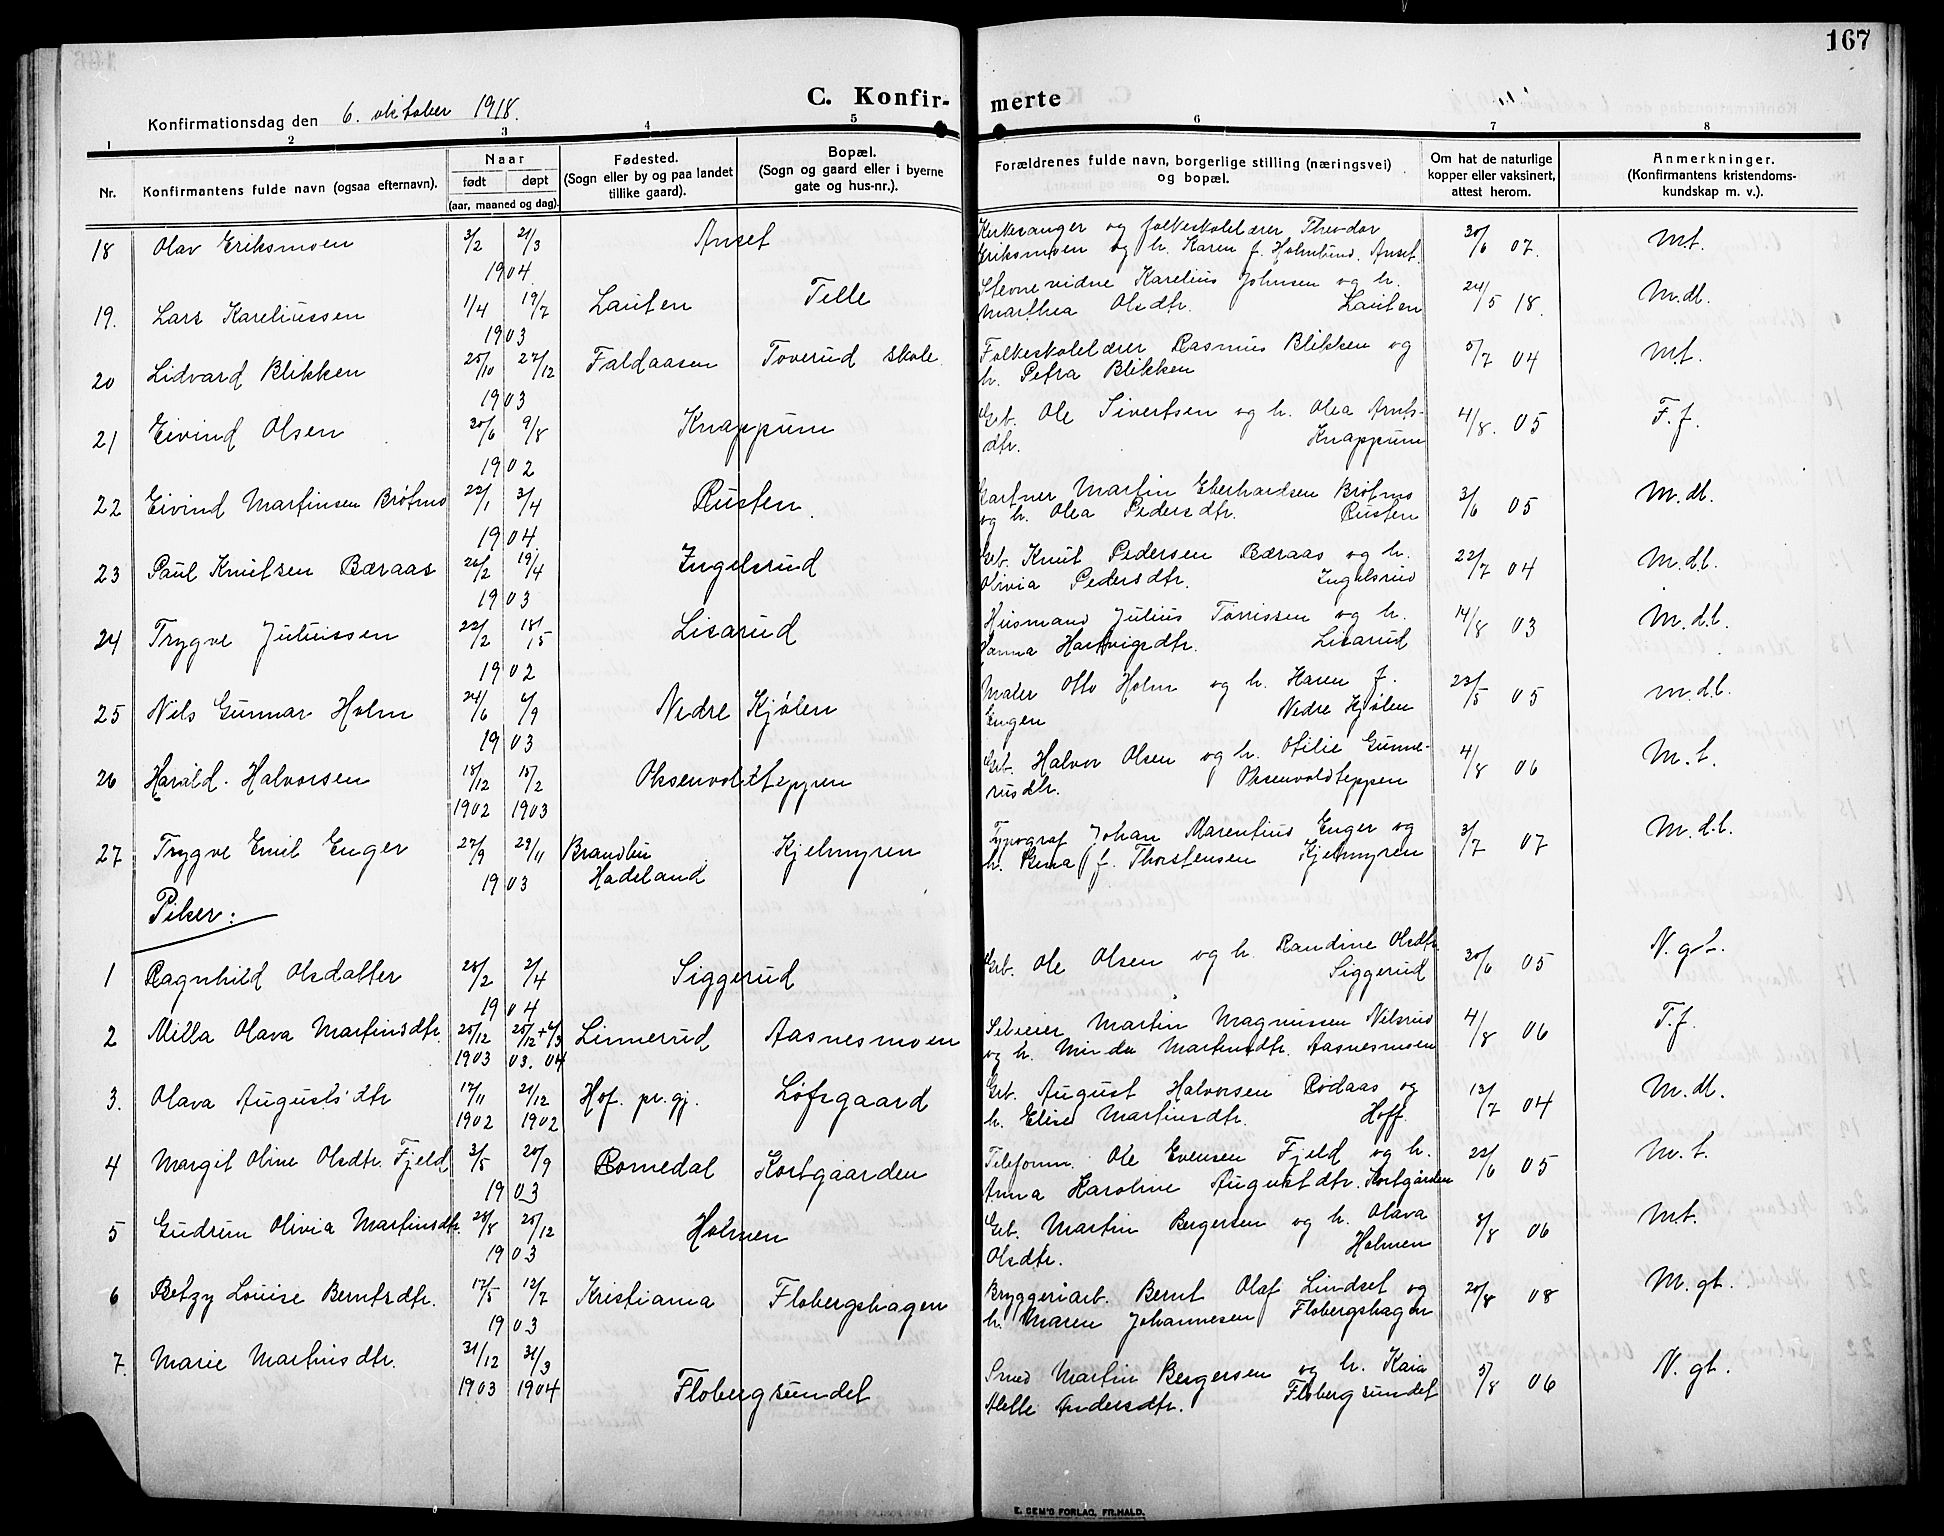 167
C. Konfir-
merte
Konfirmationsdag den 6. oktober 1918.
1 2 3 4 5 6 7 8
Nr.
Konfirmantens fulde navn (ogsaa efternavn).
Naar
født døpt
(aar, maaned og dag).
Fødested.
(Sogn eller by og paa landet
tillike gaard).
Bopæl.
(Sogn og gaard eller i byerne
gate og hus-nr.).
Forældrenes fulde navn, borgerlige stilling (næringsvei)
og bopæl.
Om hat de naturlige
kopper eller vaksinert,
attest herom.
Anmerkninger.
(Konfirmantens kristendoms-
kundskap m. v.).
18 Olav Eriksmoen 3/2 21/3 Arset Kirkesanger og folkeskolelærer Theodor 30/6 07. Mt.
1904 Eriksmoen og h. Karen f. Holmlund. Arset.
19. Lars Kareliussen 1/4 19/7 Lauten Telle Stevnevidne Karelius Johnsen og h. 24/5 18. M.dl.
1903 Marthea Olsdtr. Lauten
20 Lidvard Blikken 25/10 27/12 Faldaasen Toverud skole Folkeskolelærer Rasmus Blikken og 5/7 04 Mt.
1903 h. Petra Blikken
21 Eivind Olsen 20/6 9/8 Knappum Grb. Ole Sivertsen og h. Olea Arnts- 4/8. 05 T.f.
1902 dtr. Knappum
22 Eivind Martinsen Brøtmo 22/1 3/4 Rusten Gartner Martin Eberhardsen Brøtmo 3/6 05 M.dl.
1904 og h. Olea Pedersdtr. Rusten
23 Paul Knutsen Bæraas 26/2 19/4 Ingelsrud Grb. Knut Pedersen Bæraas og h. 22/7 04 M.dl.
1903 Olivia Pedersdtr. Ingelsrud
24 Trygve Juliussen 22/2 18/5 Lisarud Husmand Julius Tønissen og h. 14/8 03 M.d.l.
1902 Hanna Hartvigsdtr. Lisarud
25 Nils Gunnar Holm 24/6 6/9 Nedre Kjølen Maler Otto Holm og h. Karen f. 23/5 05 m.d.l.
1903 Engen Nedre Kjølen
26 Harald Halvorsen 18/12 15/2 Oksenvoldteppen Grb. Halvor Olsen og h. Otilie Gunne- 4/8 06 M.t.
1902 1903 rusdtr. Oksenvoldteppen
27 Trygve Emil Enger 27/9 29/11 Brandbu Kjelmyren Typograf Johan Marentius Enger og 3/7 07 M.d.l.
1903 Hadeland h. Stina f. Thorstensen Kjelmyren
Piker:
1 Ragnhild Olsdatter 25/2 2/4 Siggerud Grb. Ole Olsen og h. Randine Olsdtr. 30/6 05 N.gt.
1904 Siggerud
2 Milla Olava Martinsdtr. 25/12 25/12+4/3 Linnerud Aasnesmoen Selveier Martin Magnussen Nilsrud 4/8 06 T.f.
1903 03. 04 og h. Minda Martinsdtr. Aasnesmoen
3. Olava Augustsdtr 17/11 21/12 Hof. pr.gj. Løfsgaard Grb. August Halvorsen Rodaas og 13/7 04 M.dl.
1902 1902 h. Elise Martinsdtr. Hoff.
4 Margit Oline Olsdtr. Fjeld 3/5 20/9 Romedal Kortgaarden Telefonm. Ole Evensen Fjeld og h. 22/6 05 M.t.
1903 Anna Karoline Augustdtr. Kortgården
5 Gudrun Olivia Martinsdtr. 28/8 25/12 Holmen Grb. Martin Bergersen og h. Olava 8/8 06 Mt.
1903 Olsdtr. Holmen
6 Betzy Louise Berntsdtr. 17/5 12/7 Kristiania Flobergshagen Bryggeriarb. Bernt Olaf Lindset og 20/8 08 M.gt.
1903 h. Maren Johannesen Flobergshagen
7. Marie Martinsdtr. 31/12 31/3 Flobergsundet Smed Martin Bergersen og h. Kaia 5/8 06 N.gt.
1903 1904 Melle Andersdtr. Flobergsundet
E. SEM'S FORLAG, FR.HALD.